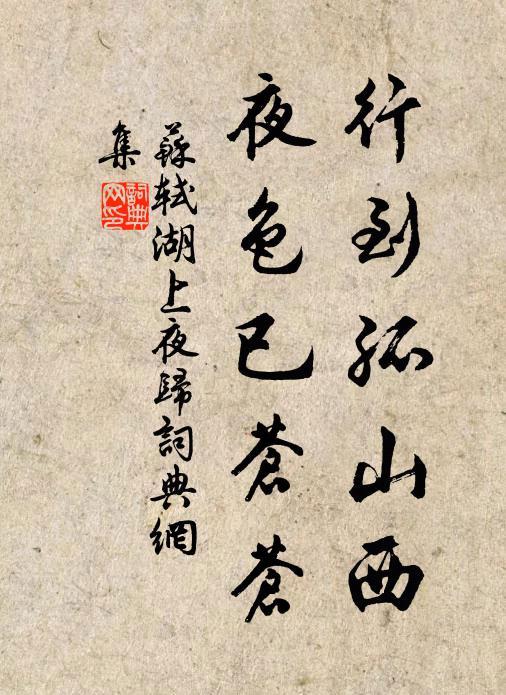 行到孤山西
夜色已蒼蒼
蘇軾湖上夜歸詞典網
集
詞典
网印